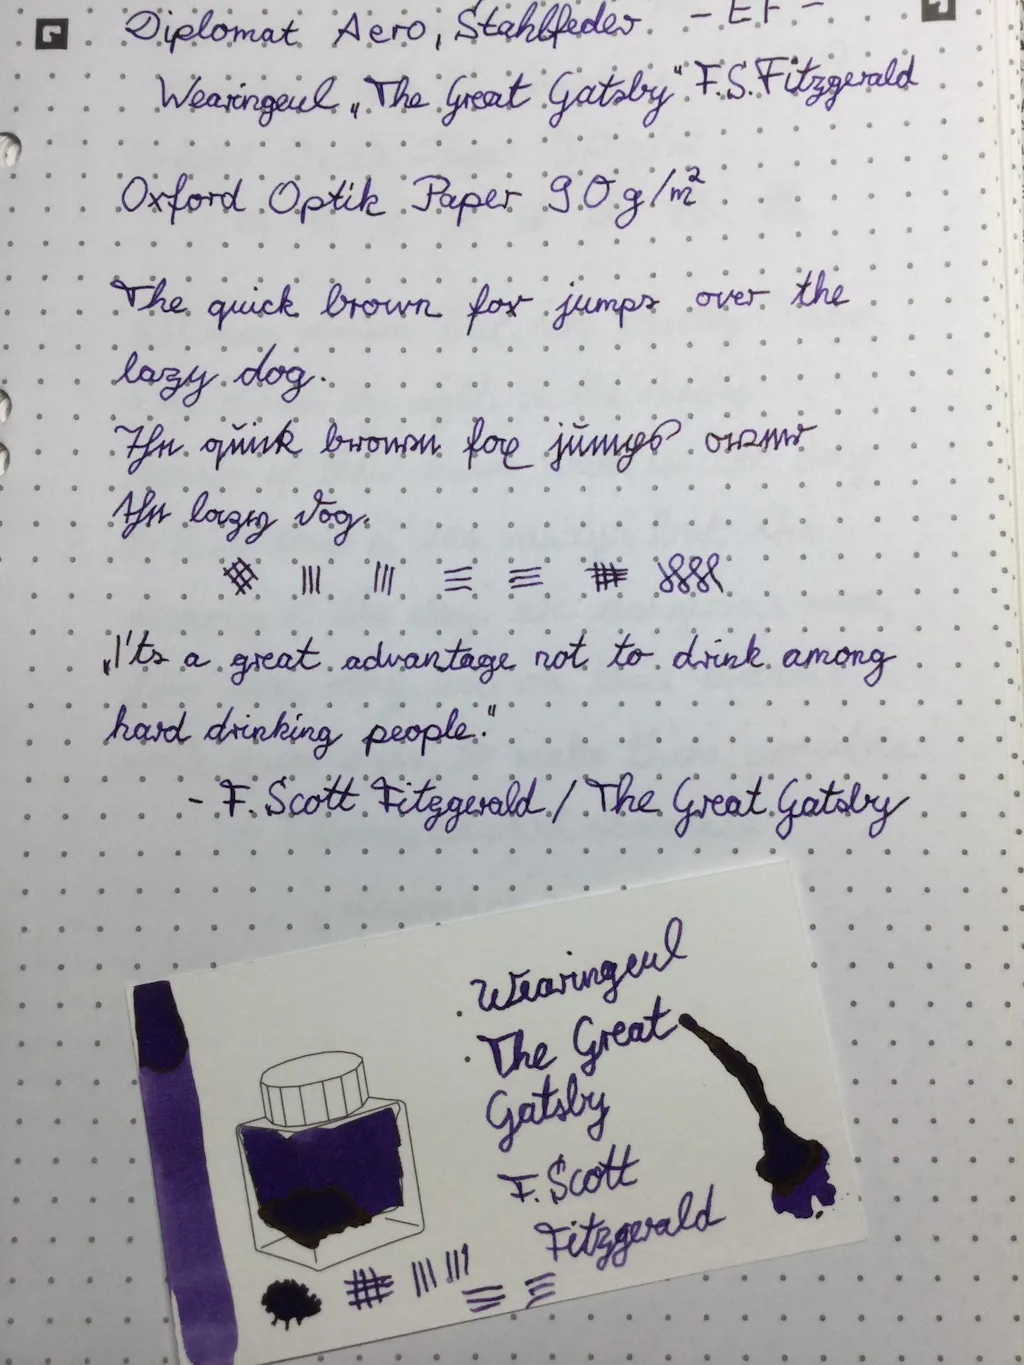 Diplomat Aero, Stahlfeder - EF -
Wearingeul „The Great Gatsby“ F.S.Fitzgerald
Oxford Optik Paper 90 g/m²
The quick brown fox jumps over the
lazy dog.
The quick brown fox jumps over
the lazy dog.
„I'ts a great advantage not to drink among
hard drinking people.“
- F. Scott Fitzgerald / The Great Gatsby
Wearingeul
The Great
Gatsby
F. Scott
Fitzgerald